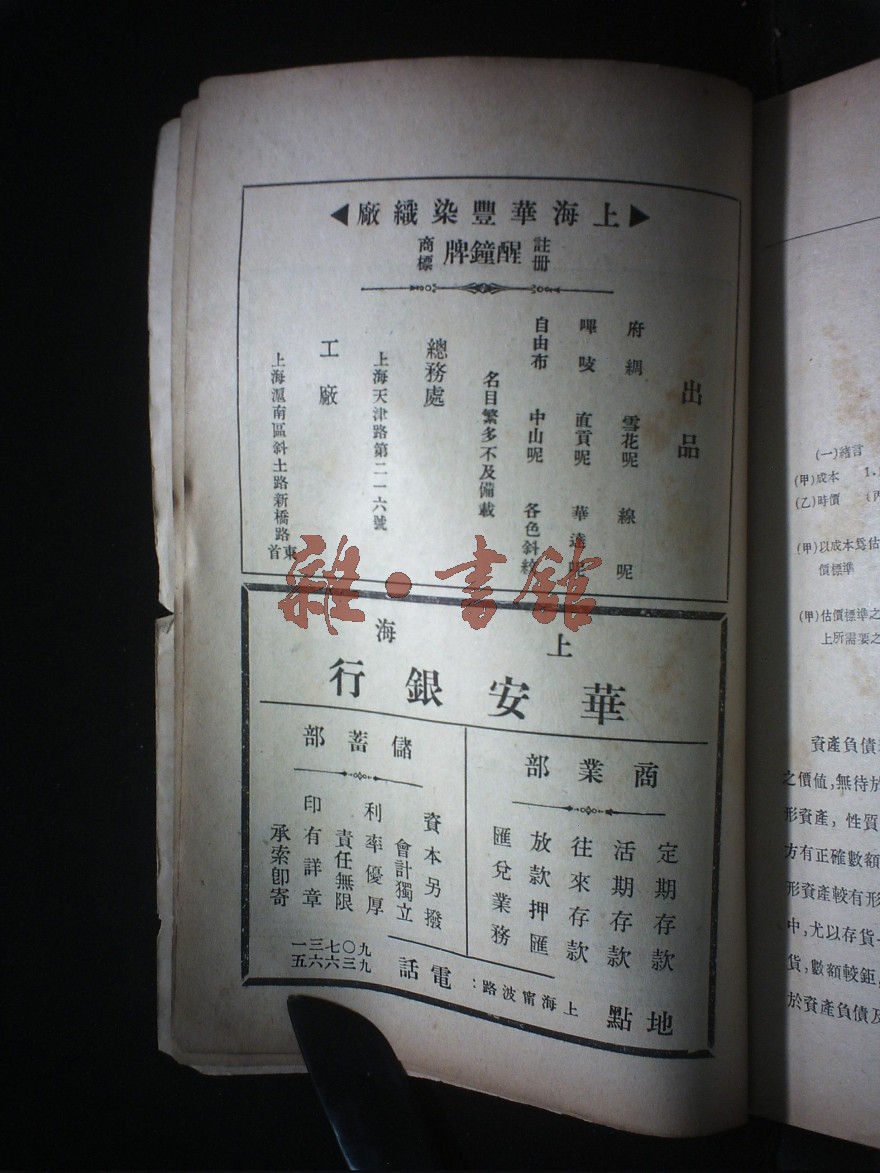 上海華豐染織廠
註冊 醒鐘牌 商標
出品
府綢 雪花呢 線呢
嗶吱 直貢呢 華達呢
自由布 中山呢 各色斜紋
名目繁多不及備載
總務處
上海天津路第二一六號
工廠
上海滬南區斜土路新橋路東首
上海
華安銀行
商業部
定期存款
活期存款
往來存款
放款押匯
匯兌業務
儲蓄部
資本另撥
會計獨立
利率優厚
責任無限
印有詳章
承索卽寄
地點 上海甯波路:
電話
九〇七三一
九三六六五
雜·書館
(一)緒言
(甲)成本 1.
(乙)時價 (丙
(甲)以成本爲估
價標準
(甲)估價標準之
上所需要之
資產負債
之價値,無待於
形資產,性質
方有正確數額
形資產較有形
中,尤以存貨
貨,數額較鉅,
於資產負債及